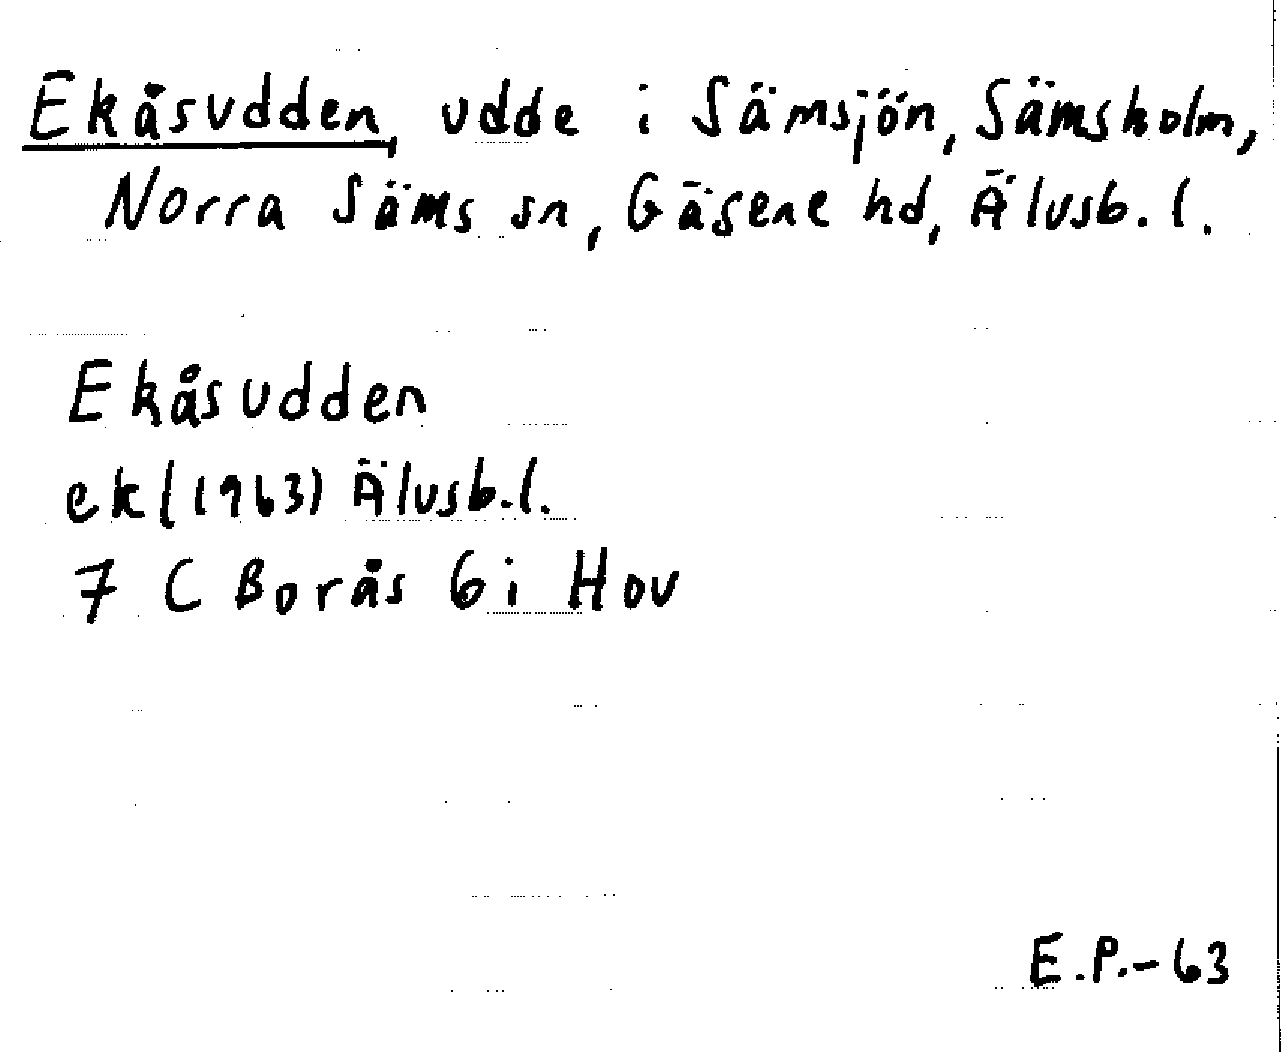 Ekåsudden, udde i Sämsjön, Sämsholm,
Norra Säms sn, Gäsene hd, Älvsb. l.
Ekåsudden
ek (1963) Älvsb. l.
7 C Borås 6 i Hov
E.P.-63